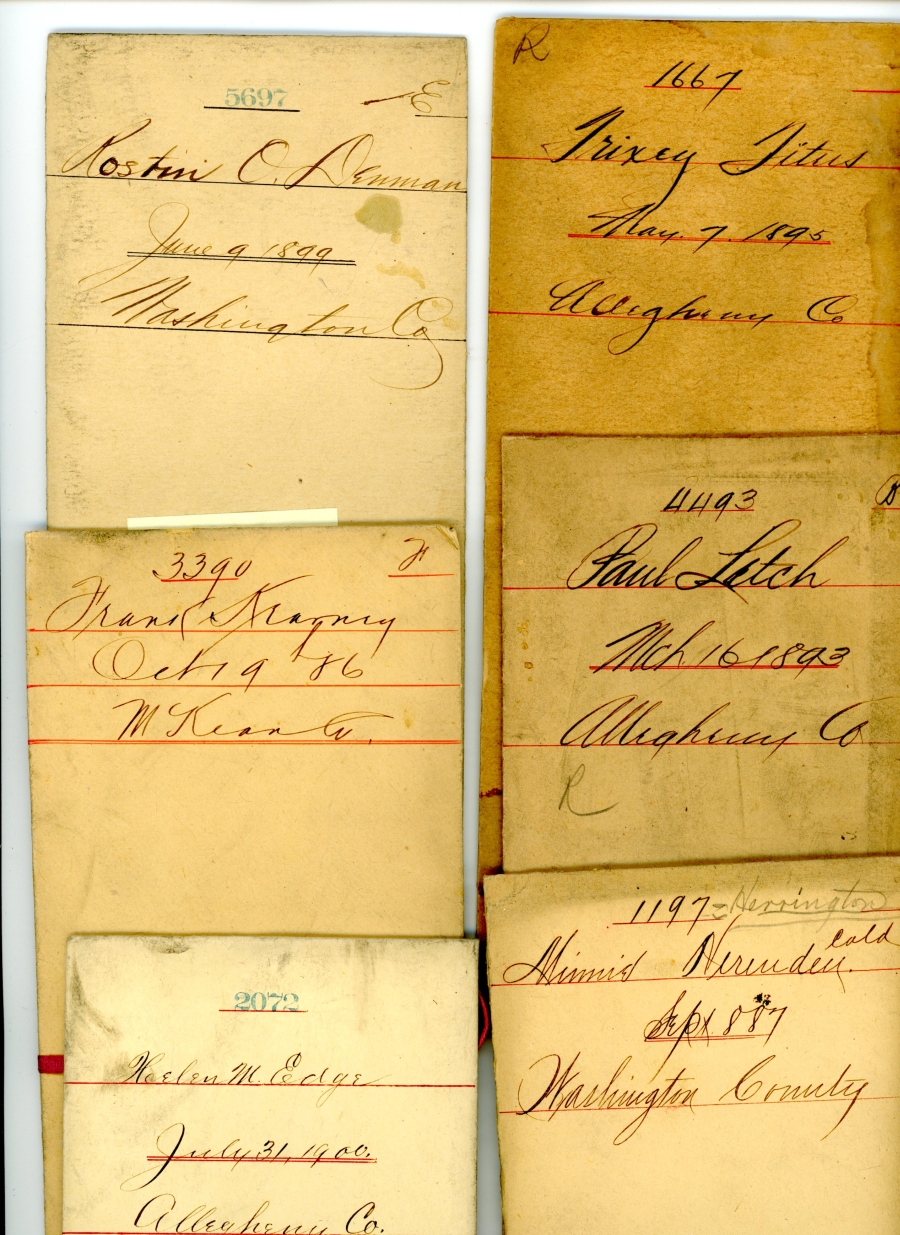 5697 E
Rostin C. Denman
June 9 1899
Washington Co
3390 F
Frank Kearney
Oct 19 '86
McKean Co.
2072
Heelen M. Edge
July 31, 1900.
Allegheny Co.
R
1667
Trixey Titus
May. 7. 1895
Allegheny Co
4493
Paul Latch
Mch 16 1893
Allegheny Co
R
1197 = Herrington
Minnie cold
Sept 8 87
Washington County